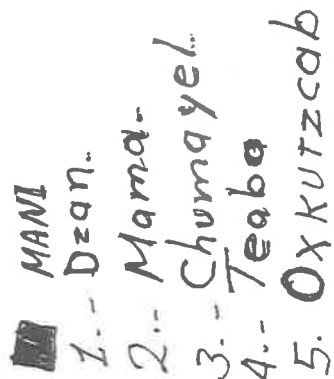 MANI
1.- Dzan..
2.- Mama-
3.- Chumayel..
4.- Teabo
5. OXKUTZCAB